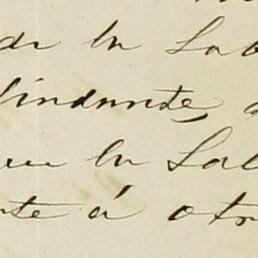 de la Sab
lindante,
la Sal
nte á otr